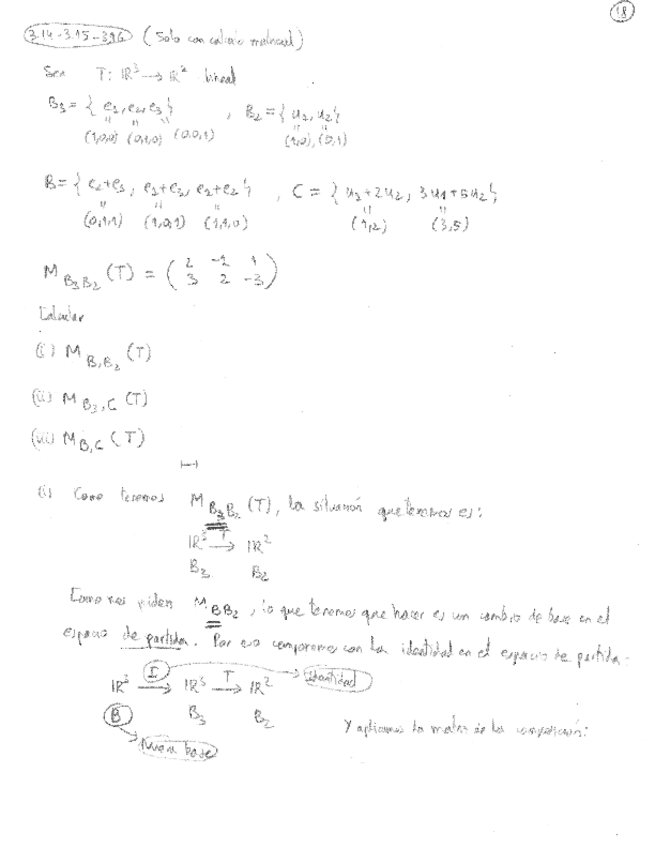 18
3.14-3.15-3.16 (Solo con calculo matricial)
Sea T: ℝ³ → ℝ² lineal
B₃ = { e₁, e₂, e₃ } , B₂ = { u₁, u₂ }
(1,0,0) (0,1,0) (0,0,1) (1,0), (0,1)
B = { e₂+e₃, e₁+e₃, e₁+e₂ } , C = { u₁+2u₂, 3u₁+5u₂ }
(0,1,1) (1,0,1) (1,1,0) (1,2) (3,5)
M B₃B₂ (T) = ( 2 -1 1
3 2 -3 )
Calcular
(i) M B,B₂ (T)
(ii) M B₃,C (T)
(iii) M B,C (T)
(i) Como tenemos M B₃B₂ (T), la situación que tenemos es:
ℝ³ T→ ℝ²
B₃ B₂
Como nos piden M BB₂, lo que tenemos que hacer es un cambio de base en el
espacio de partida. Por eso componemos con la identidad en el espacio de partida:
ℝ³ I→ ℝ³ T→ ℝ² identidad
B B₃ B₂
Y aplicamos la matriz de la composición:
Nueva base